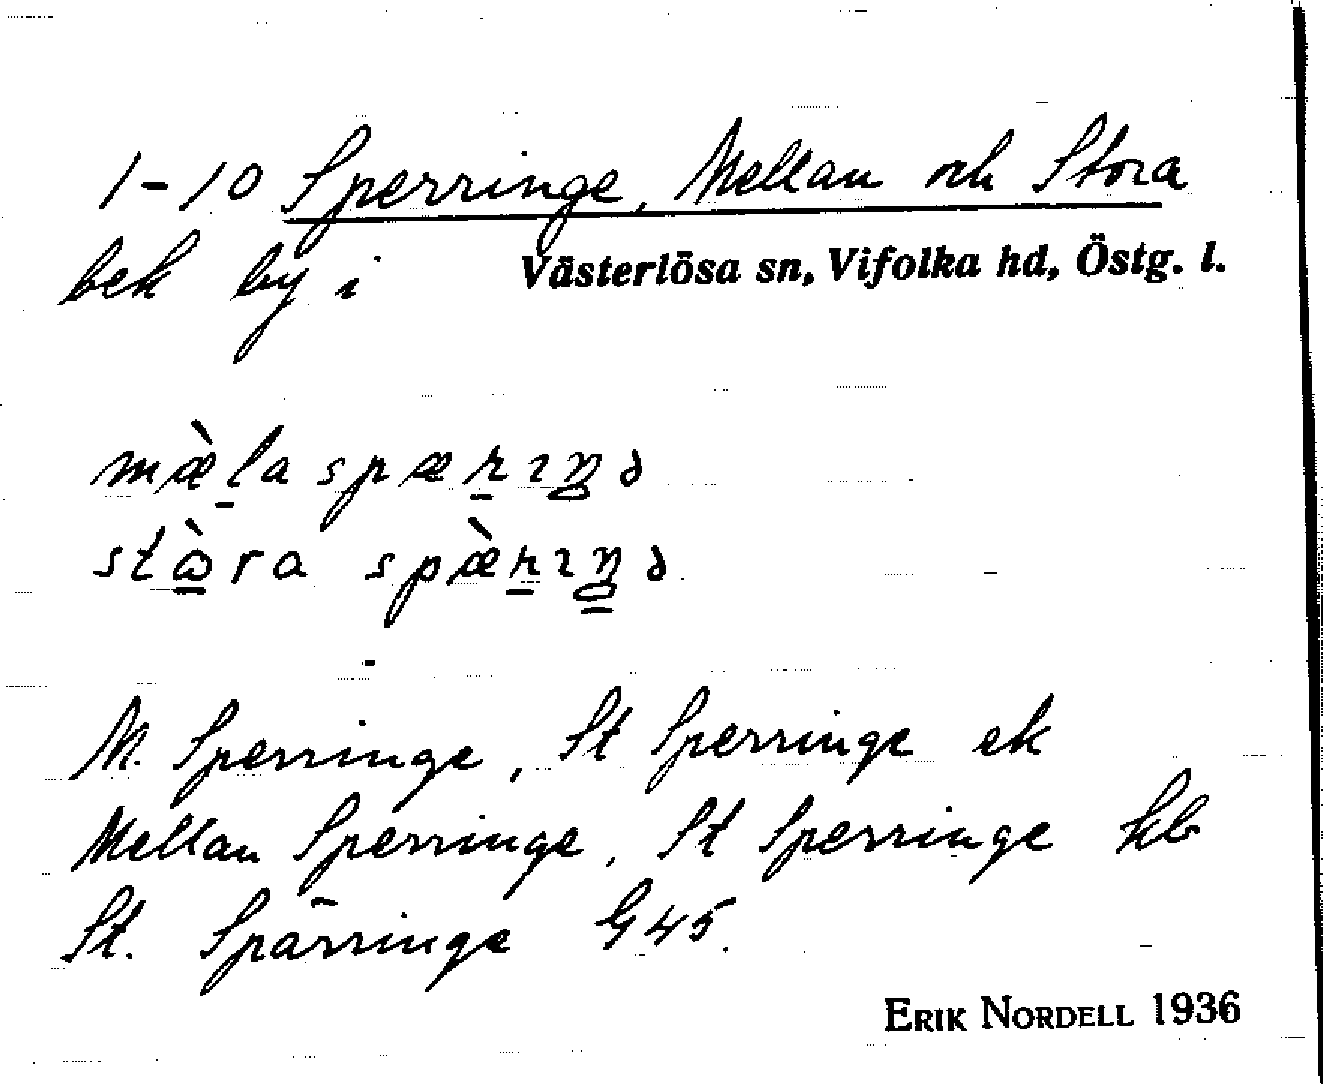 1-10 Sperringe, Mellan och Stora
bek by i Västerlösa sn, Vifolka hd, Östg. l.
mæ̀la spærıŋə
stɷ̀ra spæ̀rıŋə
M. Sperringe, St Sperringe ek
Mellan Sperringe, St Sperringe hb
St. Spärringe G 45.
ERIK NORDELL 1936